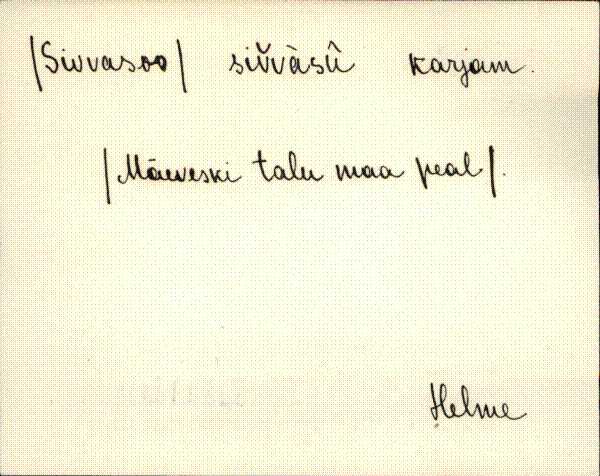 /Sivvasoo/ siv̆vàsû karjam.
/Mäeveski talu maa peal/.
Helme